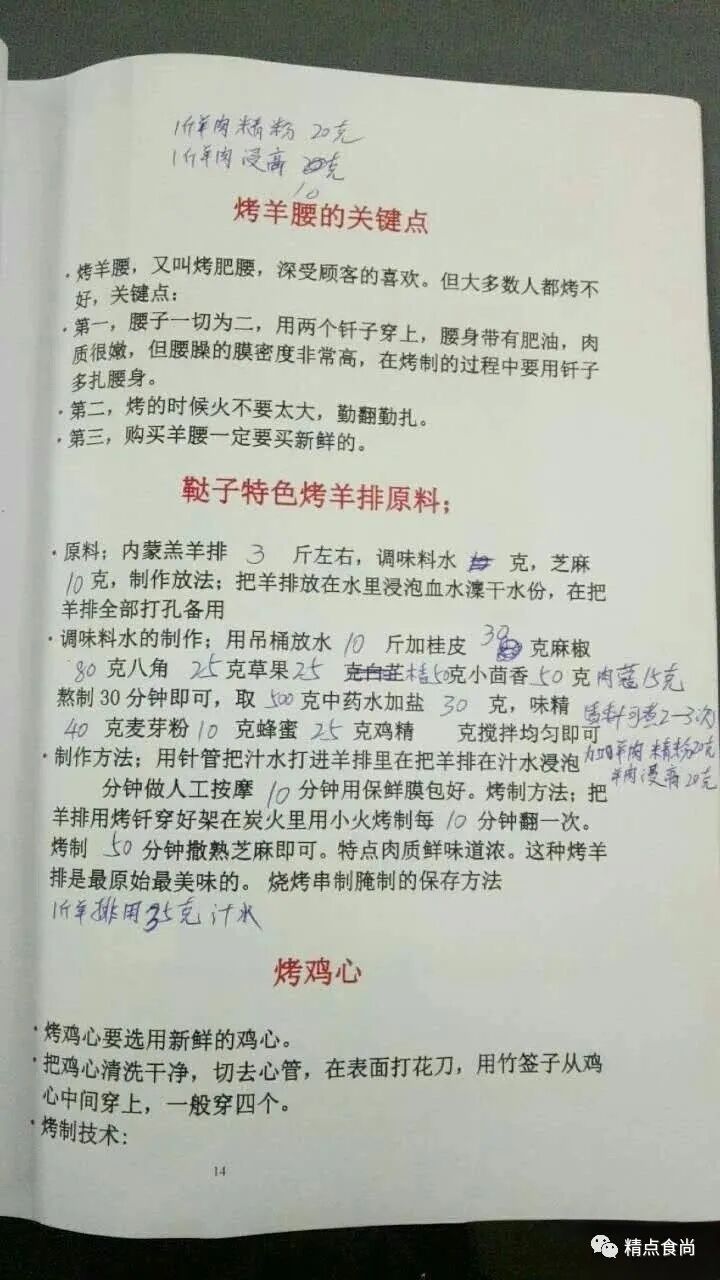 1斤羊肉 精粉 20克
1斤羊肉 浸膏 克
10
烤羊腰的关键点
·烤羊腰，又叫烤肥腰，深受顾客的喜欢。但大多数人都烤不
好，关键点：
·第一，腰子一切为二，用两个钎子穿上，腰身带有肥油，肉
质很嫩，但腰臊的膜密度非常高，在烤制的过程中要用钎子
多扎腰身。
·第二，烤的时候火不要太大，勤翻勤扎。
·第三，购买羊腰一定要买新鲜的。
鞑子特色烤羊排原料；
·原料；内蒙羔羊排 3 斤左右，调味料水 克，芝麻
10克，制作放法；把羊排放在水里浸泡血水潷干水份，在把
羊排全部打孔备用
·调味料水的制作；用吊桶放水 10 斤加桂皮 30 克麻椒
80 克八角 25克草果25 克白芷 50克小茴香 50 克 肉蔻15克
熬制30分钟即可，取 500克中药水加盐 30 克，味精 可煮2-3次
40 克麦芽粉 10 克蜂蜜 25 克鸡精 克搅拌均匀即可
·制作方法；用针管把汁水打进羊排里在把羊排在汁水浸泡 羊肉 精粉20克
分钟做人工按摩 10分钟用保鲜膜包好。烤制方法；把 羊肉浸膏20克
羊排用烤钎穿好架在炭火里用小火烤制每 10 分钟翻一次。
烤制 50 分钟撒熟芝麻即可。特点肉质鲜味道浓。这种烤羊
排是最原始最美味的。 烧烤串制腌制的保存方法
1斤羊排用35克汁水
烤鸡心
·烤鸡心要选用新鲜的鸡心。
·把鸡心清洗干净，切去心管，在表面打花刀，用竹签子从鸡
心中间穿上，一般穿四个。
·烤制技术:
14
精点食尚